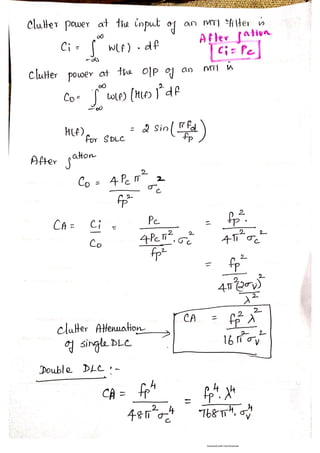 Clutter power at the input of an MTI filter is
Ci = ∫_{-∞}^{∞} W(f) . df
After gation
Ci = Pc
Clutter power at the o/p of an MTI is
Co = ∫_{-∞}^{∞} W(f) [H(f)]^2 df
H(f) for SDLC = 2 sin(π fd / fp)
After gation
Co = 4 Pc π^2 / fp^2 σc^2
CA = Ci / Co = Pc / (4Pc π^2 / fp^2 . σc^2) = fp^2 . / 4π^2 σc^2
= fp^2 / (4π^2 (2σv)^2 / λ^2)
Clutter Attenuation of single DLC → CA = fp^2 λ^2 / 16π^2 σv^2
Double DLC :-
CA = fp^4 / 48π^2 σc^4 = fp^4 . λ^4 / 768π^4 . σv^4